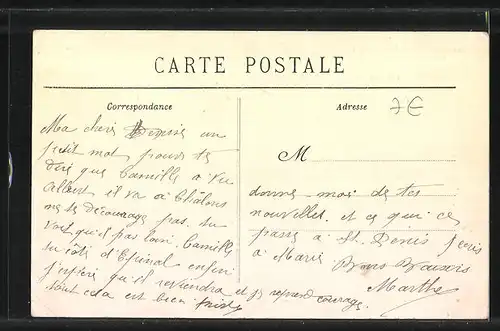 CARTE POSTALE
Correspondance
Adresse
7€
M
Ma chère Depuis un
petit mot pour te
dire que Camille a vu
Albert il va à Châlons
ne te décourage pas tu
vois qu'il pas loin. Camille
du côté d'Epinal enfin
j'espère qu'il reviendra et je reprend courage
tout cela est bien triste
donne moi de tes
nouvelles et ce qui ce
passe à St. Denis j'écris
à Marie Bons Baisers
Marthe